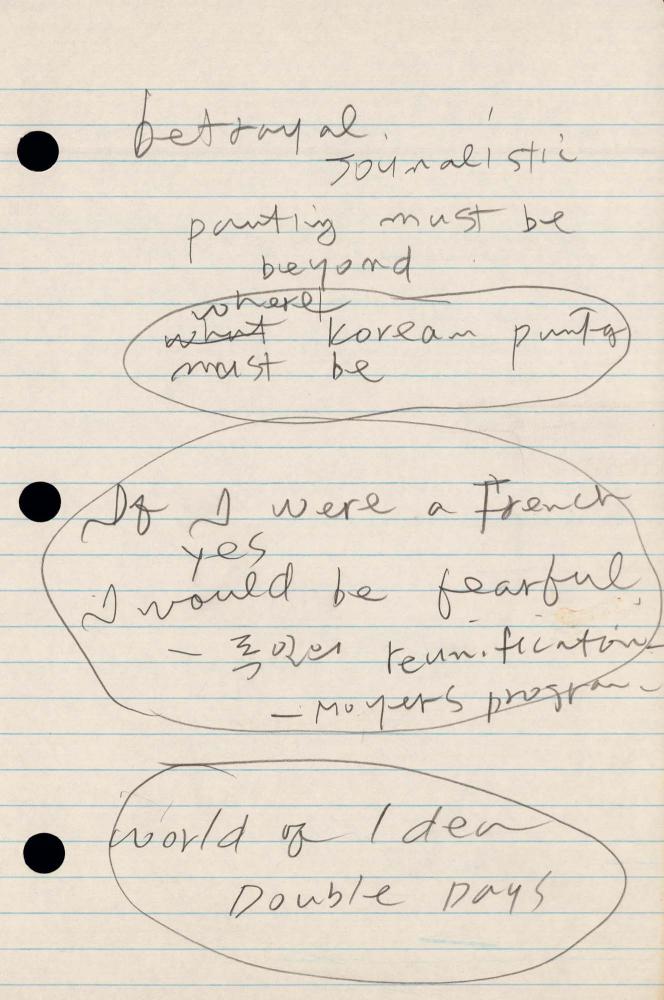 betrayal.
Journalistic
painting must be
beyond
where
what Korean painting
must be
If I were a French
yes
I would be fearful,
- 독일의 reunification
- Moyers program
World of Idea
Double Days